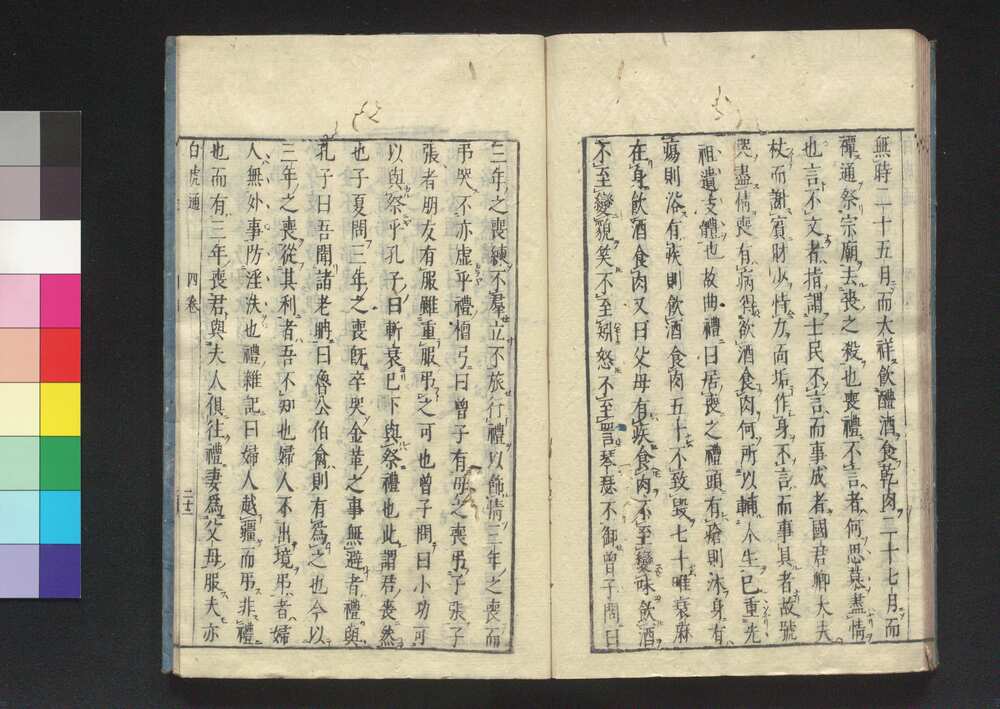 無時二十五月而大祥飲醴酒食乾肉二十七月而
禫通祭宗廟去喪之殺也喪禮不言者何思慕盡情
也言不文者指謂士民不言而事成者國君卿大夫
杖而謝賓財少恃力面垢作身不言而事具者故號
哭盡情喪有病得飲酒食肉何所以輔人生已重先
祖遺支體也故曲禮曰居喪之禮頭有瘡則沐身有
瘍則浴有疾則飲酒食肉五十不致毀七十唯衰麻
在身飲酒食肉又曰父母有疾食肉不至變味飲酒
不至變貌笑不至矧怒不至詈琴瑟不御曾子問曰
三年之喪練不羣立不旅行禮以飾情三年之喪而
弔哭不亦虛乎禮檀弓曰曾子有母之喪弔子張子
張者朋友有服雖重服弔之可也曾子問曰小功可
以與祭乎孔子曰斬衰已下與祭禮也此謂君喪然
也子夏問三年之喪旣卒哭金革之事無避者禮與
孔子曰吾聞諸老聃曰魯公伯禽則有爲之也今以
三年之喪從其利者吾不知也婦人不出境弔者婦
人無外事防淫泆也禮雜記曰婦人越疆而弔非禮
也而有三年喪君與夫人俱往禮妻爲父母服夫亦
白虎通 四卷 二十二